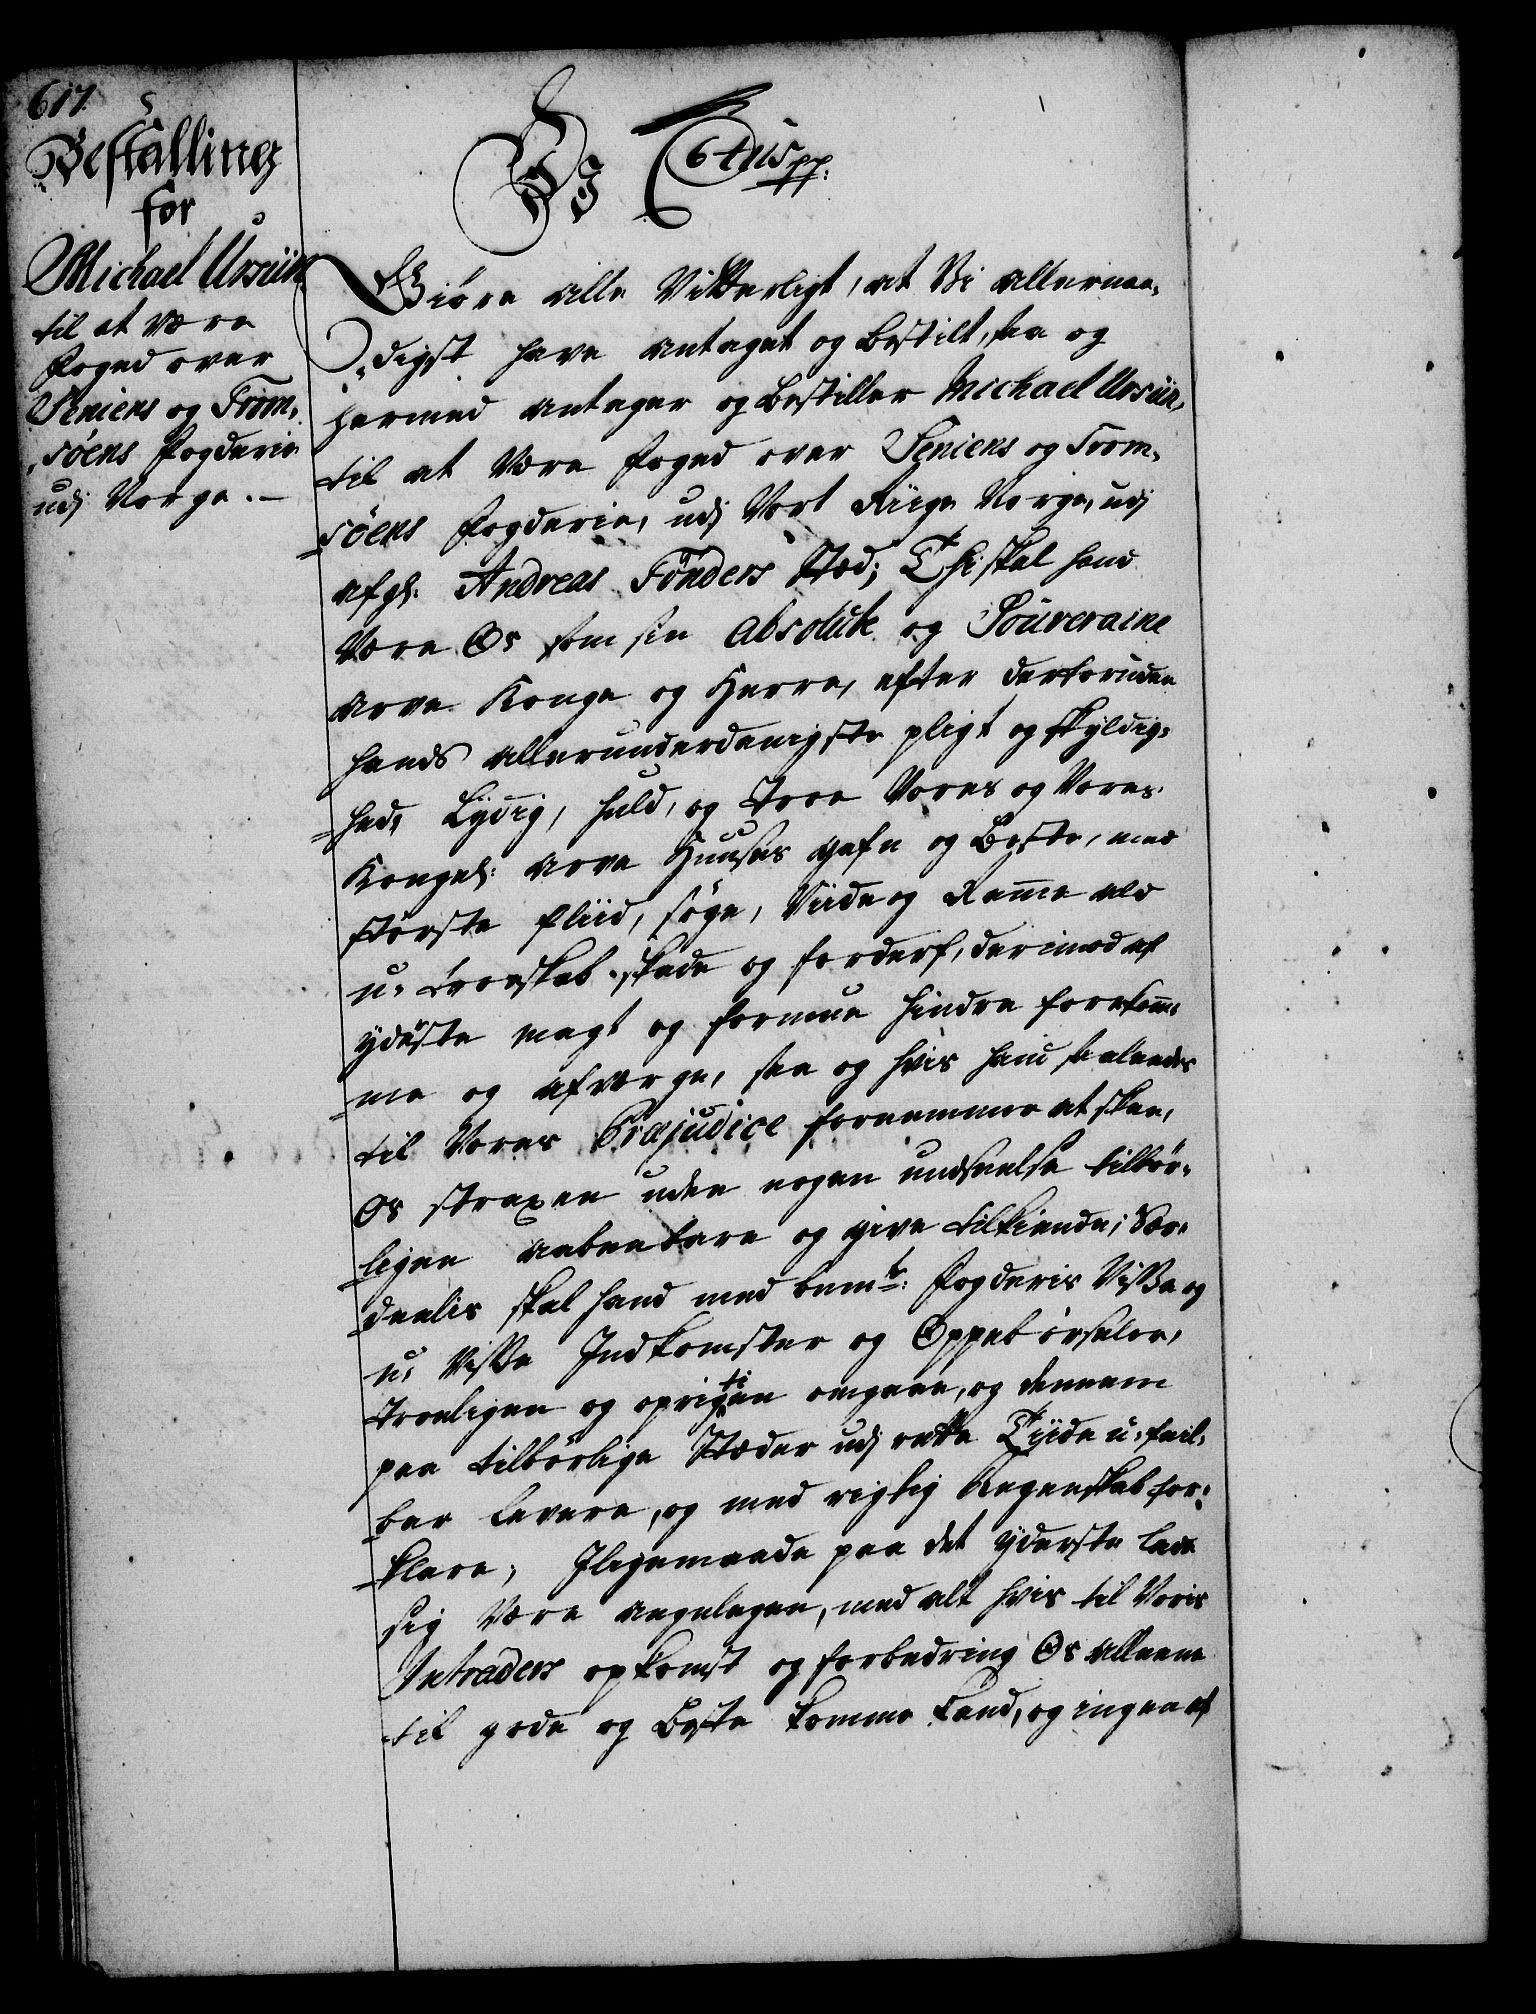 617.
Bestalling
for
Michael Ursiin
til at være
foged over
Seniens og Trom,
,søens fogderie
udj Norge.-
C 6tus pp:
Giøre alle Vitterligt, at Vi allernaa,
,digst have antaget og bestilt, saa og
hermed antager og bestiller Michael Ursiin,
til at være foged over Seniens og Trom,
søens fogderie, udj Vort Riige Norge, udj
afgl: Andreas Tønders Stæd; Thi skal hand
være Os som sin absolute og Souveraine
arve Konge og Herre, efter derforuden
hands allerunderdanigste pligt og skyldig,
hed, Lydig, huld, og troe Vores og Vores
Kongel: arve Huuses gafn og Beste, med
største fliid, søge, Viide og Ramme ald
u, troeskab skade og forderf, derimod af
yderste magt og formue hindre forekom,
me og afværge, saa og hvis hand saaledes
til Vores Præjudice fornemmer at skee,
Os straxen uden nogen undseelse tilbør,
ligen aabenbare og give tilkiende; Sær,
deelis skal hand med bemte: fogderis Visse og
u, Visse Indkomster og Oppebørseler,
troeligen og oprigtigen omgaae, og dennem
paa tilbørlige Stæder udj rette Tiide u, feil,
bar levere, og med rigtig Regenskab for,
klare; Iligemaade paa det yderste lade
sig være angelegen, med alt hvis til Voris
Intraders opkomst og forbedring Os alleene
til gode og Beste komme kand, og ingen af